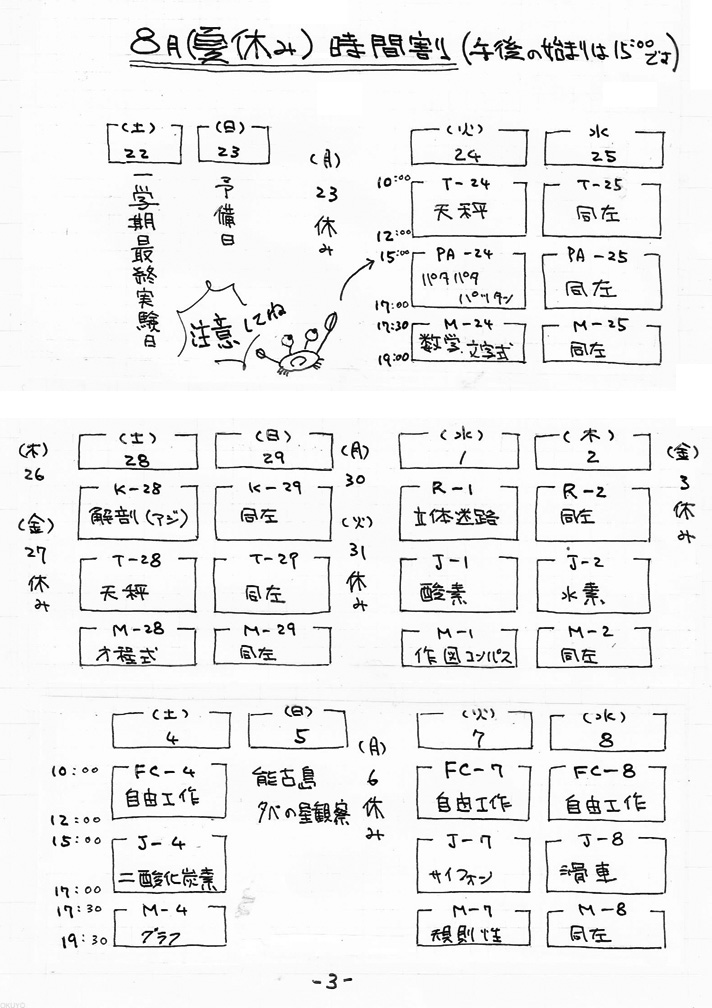 8月(夏休み) 時間割 (午後の始まりは15:00です)
(土)
22
一学期最終実験日
(日)
23
予備日
(月)
23
休み
注意してね
(火)
24
水
25
10:00
T-24
天秤
12:00
T-25
同左
15:00
PA-24
パタパタ
パッタン
17:00
PA-25
同左
17:30
M-24
数学 文字式
19:00
M-25
同左
(木)
26
(金)
27
休み
(土)
28
(日)
29
K-28
解剖(アジ)
K-29
同左
T-28
天秤
T-29
同左
M-28
方程式
M-29
同左
(月)
30
(火)
31
休み
(水)
1
(木)
2
R-1
立体迷路
R-2
同左
J-1
酸素
J-2
水素
M-1
作図コンパス
M-2
同左
(金)
3
休み
(土)
4
(日)
5
10:00
FC-4
自由工作
12:00
15:00
J-4
二酸化炭素
17:00
17:30
M-4
グラフ
19:30
能古島
夕べの星観察
(月)
6
休み
(火)
7
(水)
8
FC-7
自由工作
FC-8
自由工作
J-7
サイフォン
J-8
滑車
M-7
規則性
M-8
同左
-3-